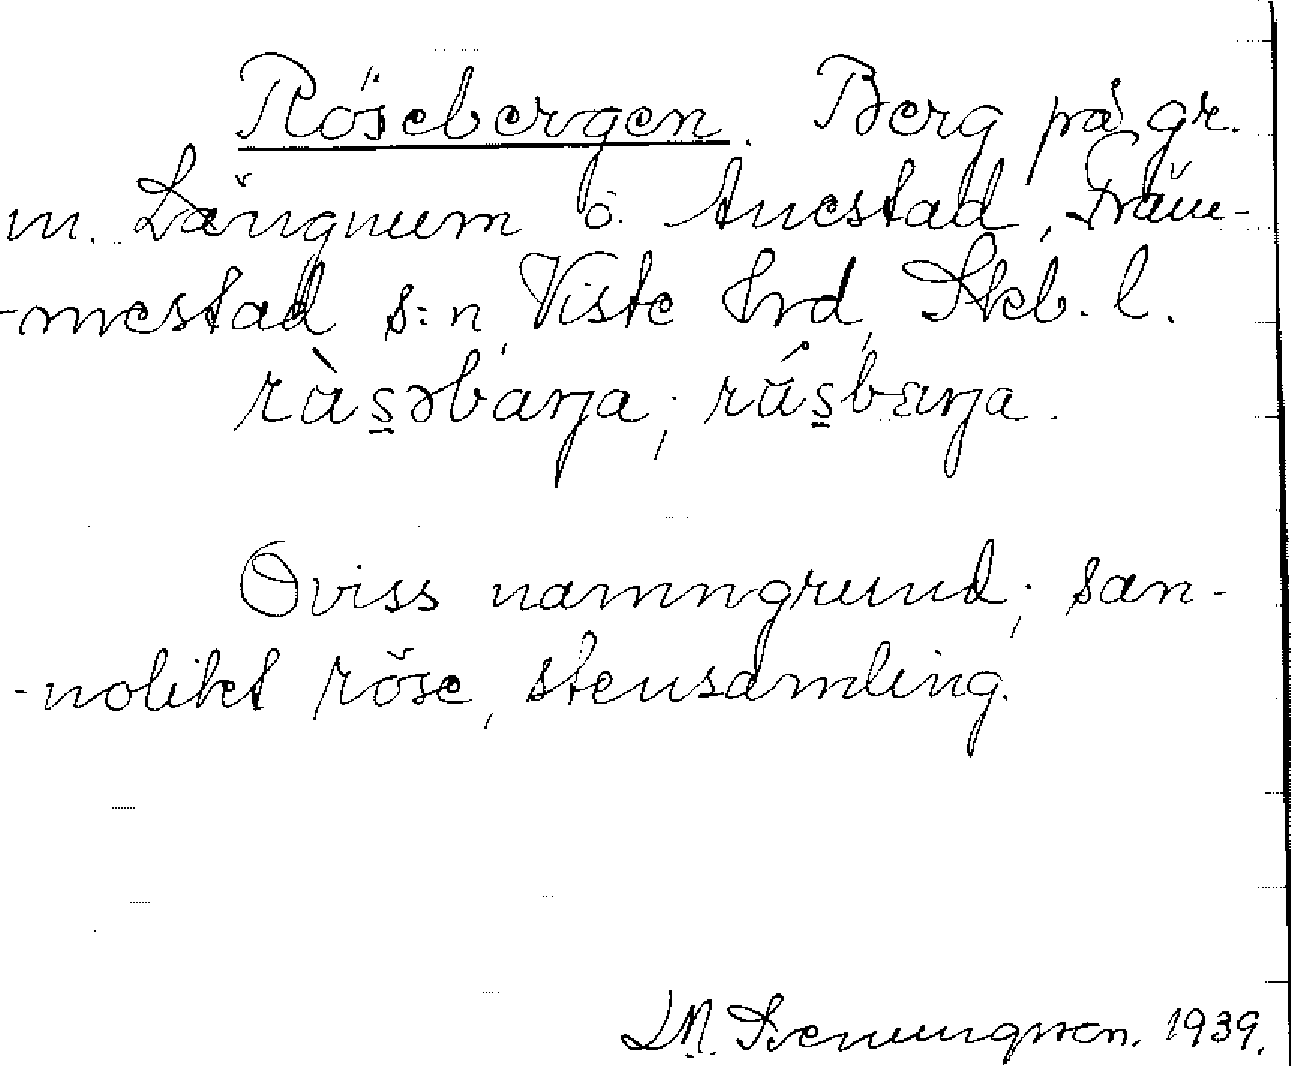 Rösebergen. Berg på gr.
m. Längnum o. Anestad, Främ-
-mestad s:n, Viste hrd, Skb. l.
ràs̱əbarŋa; rås̱bɛrŋa.
Oviss namngrund; san-
-nolikt röse, stensamling.
1939.